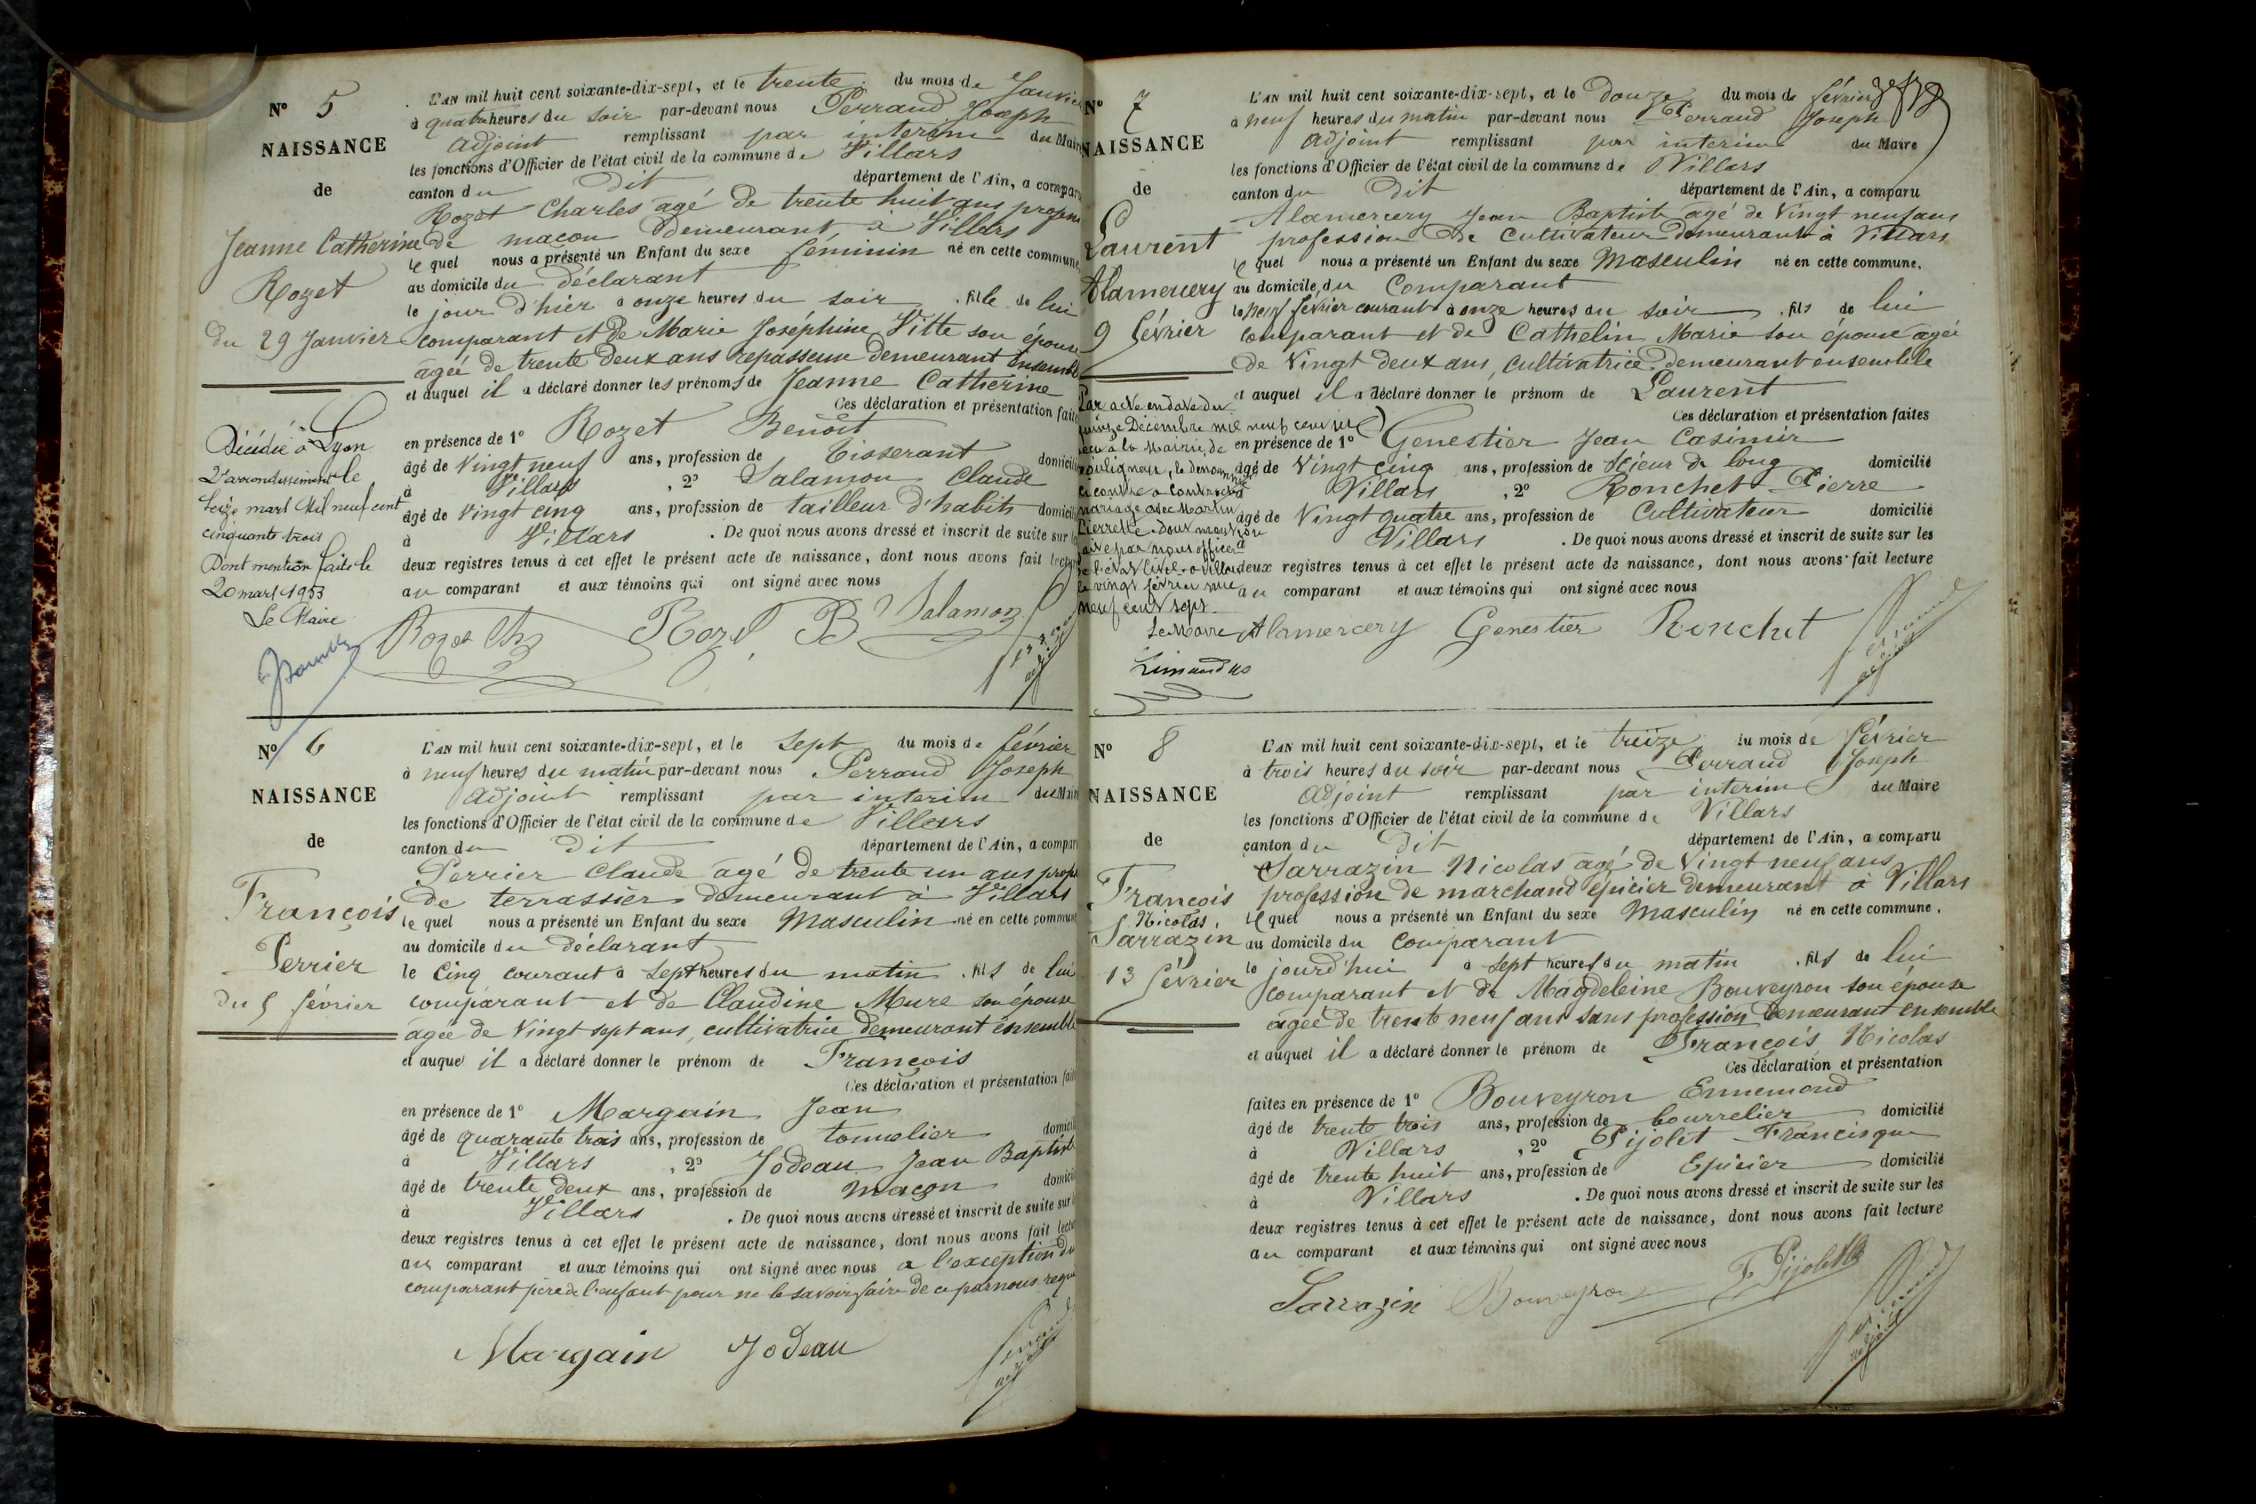 N° 5
NAISSANCE
de
Jeanne Catherine
Rozet
du 29 Janvier
Décédée à Lyon
2e arrondissement le
seize mars Mil neuf cent
cinquante trois
Dont mention faite le
20 mars 1953
Le Maire
L'AN mil huit cent soixante-dix-sept, et le trente du mois de Janvier
à quatre heures du soir par-devant nous Perraud Joseph
adjoint remplissant par interim du Maire
les fonctions d'Officier de l'état civil de la commune de Villars
canton du dit département de l'Ain, a comparu
Rozet Charles agé de trente huit ans profession
de maçon demeurant à Villars
le quel nous a présenté un Enfant du sexe féminin né en cette commune
au domicile du déclarant
le jour d'hier à onze heures du soir . fille de lui
comparant et de Marie Joséphine Vitte son épouse
agée de trente deux ans repasseuse demeurant ensemble
et auquel il a déclaré donner les prénoms de Jeanne Catherine
Ces déclaration et présentation faites
en présence de 1° Rozet Benoît
âgé de vingt neuf ans, profession de Tisserant domicilié
à Villars , 2° Salamon Claude
âgé de vingt cinq ans, profession de tailleur d'habits domicilié
à Villars . De quoi nous avons dressé et inscrit de suite sur les
deux registres tenus à cet effet le présent acte de naissance, dont nous avons fait lecture
au comparant et aux témoins qui ont signé avec nous
Rozet Ch Rozet B Salamon
N° 6
NAISSANCE
de
François
Perrier
du 5 février
L'AN mil huit cent soixante-dix-sept, et le sept du mois de février
à neuf heures du matin par-devant nous Perraud Joseph
adjoint remplissant par interim du Maire
les fonctions d'Officier de l'état civil de la commune de Villars
canton du dit département de l'Ain, a comparu
Perrier Claude agé de trente un ans profession
de terrassier demeurant à Villars
le quel nous a présenté un Enfant du sexe Masculin né en cette commune
au domicile du déclarant
le cinq courant à sept heures du matin . fils de lui
comparant et de Claudine Mure son épouse
agée de vingt sept ans, cultivatrice demeurant ensemble
et auquel il a déclaré donner le prénom de François
Ces déclaration et présentation faites
en présence de 1° Margain Jean
âgé de quarante trois ans, profession de tonnelier domicilié
à Villars , 2° Jodeau Jean Baptiste
âgé de trente deux ans, profession de maçon domicilié
à Villars . De quoi nous avons dressé et inscrit de suite sur les
deux registres tenus à cet effet le présent acte de naissance, dont nous avons fait lecture
au comparant et aux témoins qui ont signé avec nous a l'exception du
comparant père de l'enfant pour ne le savoir faire de ce par nous requis
Margain Jodeau
N° 7
NAISSANCE
de
Laurent
Alamercery
9 février
Par acte en date du
quinze Décembre mil neuf cent six
reçu à la Mairie de
Bouligneux, le dénommé
ci contre a contracté
mariage avec Martin
Pierrette. dont mention
faite par nous officier
de l'état civil à Villars
le vingt février mil
neuf cent sept.
Le Maire
L'AN mil huit cent soixante-dix-sept, et le douze du mois de février
à neuf heures du matin par-devant nous Perraud Joseph
adjoint remplissant par interim du Maire
les fonctions d'Officier de l'état civil de la commune de Villars
canton du dit département de l'Ain, a comparu
Alamercery Jean Baptiste agé de vingt neuf ans
profession de cultivateur demeurant à Villars
le quel nous a présenté un Enfant du sexe Masculin né en cette commune.
au domicile du Comparant
le neuf février courant à onze heures du soir . fils de lui
comparant et de Cathelin Marie son épouse agée
de vingt deux ans, cultivatrice demeurant ensemble
et auquel il a déclaré donner le prénom de Laurent
Ces déclaration et présentation faites
en présence de 1° Genestier Jean Casimir
âgé de vingt cinq ans, profession de scieur de long domicilié
à Villars , 2° Ronchet Pierre
âgé de vingt quatre ans, profession de cultivateur domicilié
à Villars . De quoi nous avons dressé et inscrit de suite sur les
deux registres tenus à cet effet le présent acte de naissance, dont nous avons fait lecture
au comparant et aux témoins qui ont signé avec nous
Alamercery Genestier Ronchet
N° 8
NAISSANCE
de
François
Nicolas
Sarrazin
13 février
L'AN mil huit cent soixante-dix-sept, et le treize du mois de février
à trois heures du soir par-devant nous Perraud Joseph
adjoint remplissant par interim du Maire
les fonctions d'Officier de l'état civil de la commune de Villars
canton du dit département de l'Ain, a comparu
Sarrazin Nicolas agé de vingt neuf ans
profession de marchand épicier demeurant à Villars
le quel nous a présenté un Enfant du sexe Masculin né en cette commune.
au domicile du comparant
le jourd'hui à sept heures du matin . fils de lui
comparant et de Magdeleine Bouveyron son épouse
agée de trente neuf ans sans profession demeurant ensemble
et auquel il a déclaré donner le prénom de François Nicolas
Ces déclaration et présentation
faites en présence de 1° Bouveyron Ennemond
âgé de trente trois ans, profession de bourrelier domicilié
à Villars , 2° Pijolet Francisque
âgé de trente huit ans, profession de Epicier domicilié
à Villars . De quoi nous avons dressé et inscrit de suite sur les
deux registres tenus à cet effet le présent acte de naissance, dont nous avons fait lecture
au comparant et aux témoins qui ont signé avec nous
Sarrazin Bouveyron F Pijolet